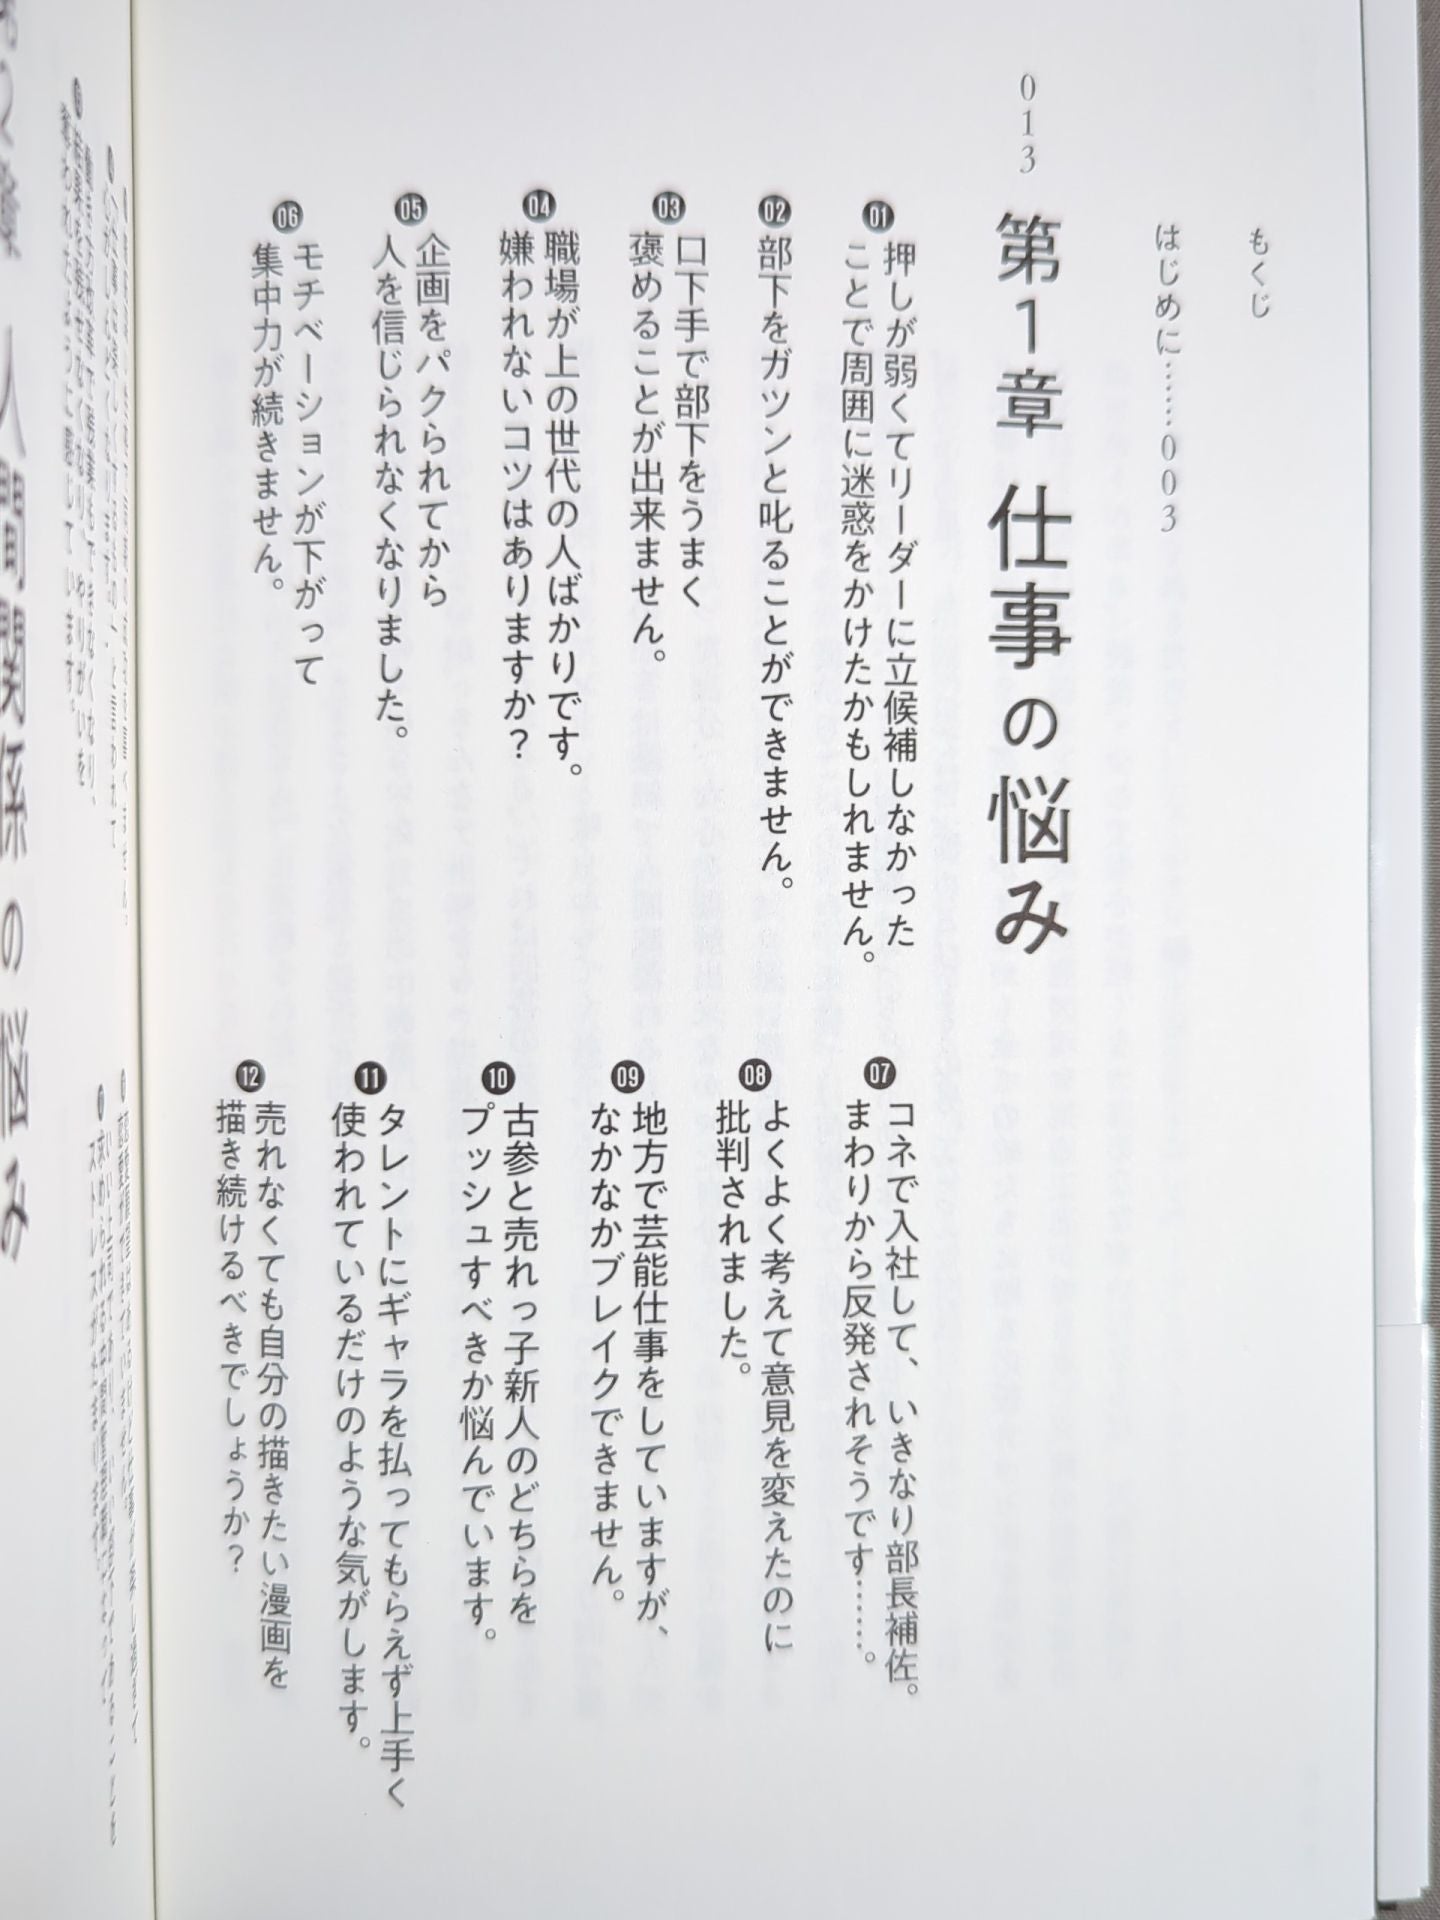 もくじ
はじめに……003
013 第1章 仕事の悩み
01 押しが弱くてリーダーに立候補しなかった
ことで周囲に迷惑をかけたかもしれません。
02 部下をガツンと叱ることができません。
03 口下手で部下をうまく
褒めることが出来ません。
04 職場が上の世代の人ばかりです。
嫌われないコツはありますか?
05 企画をパクられてから
人を信じられなくなりました。
06 モチベーションが下がって
集中力が続きません。
07 コネで入社して、いきなり部長補佐。
まわりから反発されそうです……。
08 よくよく考えて意見を変えたのに
批判されました。
09 地方で芸能仕事をしていますが、
なかなかブレイクできません。
10 古参と売れっ子新人のどちらを
プッシュすべきか悩んでいます。
11 タレントにギャラを払ってもらえず上手く
使われているだけのような気がします。
12 売れなくても自分の描きたい漫画を
描き続けるべきでしょうか?
人間関係の悩み